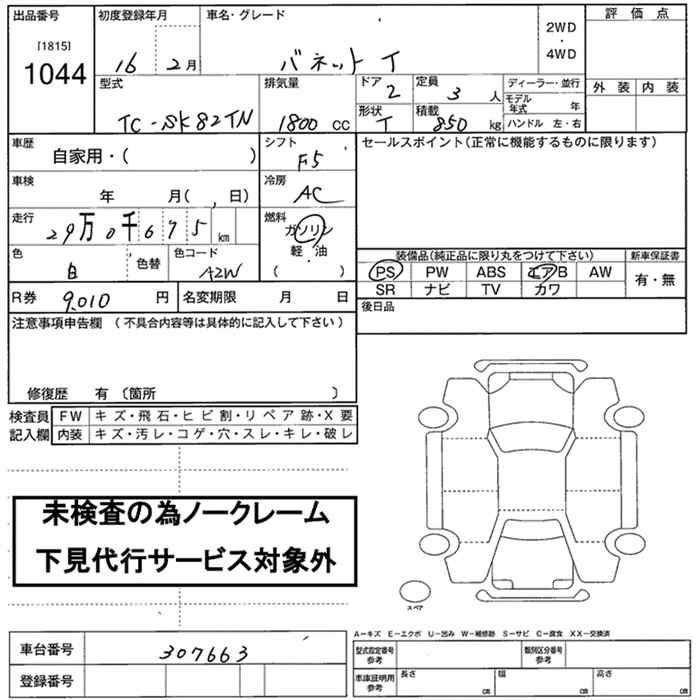 出品番号 初度登録年月 車名・グレード 2WD・4WD 評価点
[1815]
1044 16 2月 バネット T
型式 排気量 ドア 定員 ディーラー・並行 外装 内装
2 3 人 モデル年式 年
TC-SK82TN 1800 CC 形状 T 積載 850 kg ハンドル 左・右
車歴 シフト セールスポイント(正常に機能するものに限ります)
自家用・( ) F5
車検 冷房
年 月( , 日) AC
走行 燃料
29万0千675 km ガソリン
軽・油
色 色替 色コード ( ・ ) 装備品(純正品に限り丸をつけて下さい) 新車保証書
白 A2W PS PW ABS エアB AW 有・無
SR ナビ TV カワ
R券 9,010 円 名変期限 月 日 後日品
注意事項申告欄 (不具合内容等は具体的に記入して下さい)
修復歴 有 〔箇所 〕
検査員 FW キズ・飛石・ヒビ割・リペア跡・X要
記入欄 内装 キズ・汚レ・コゲ・穴・スレ・キレ・破レ
未検査の為ノークレーム
下見代行サービス対象外
スペア
A−キズ E−エクボ U−凹み W−補修跡 S−サビ C−腐食 XX−交換済
車台番号 307663 型式指定番号 参考 類別区分番号 参考
登録番号 車庫証明用 参考 長さ cm 幅 cm 高さ cm